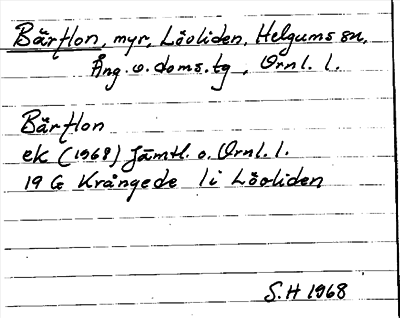 Bärflon, myr, Löoliden, Helgums sn,
Ång. o. doms. tg, Örnl. l.
Bärflon
ek (1968) Jämtl. o. Örnl. l.
19 G Krångede 1i Löoliden
S.H 1968